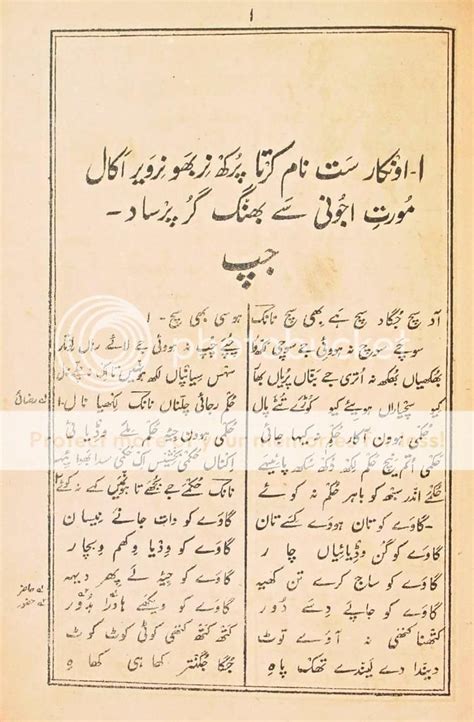 ۱
۱-اونکار ست نام کرتا پرکھ نربھو نرویر اکال
مورت اجونی سے بھنگ گر پرساد-
جپ
آد سچ جگاد سچ ہے بھی سچ نانک ہوسی بھی سچ - ۱
سوچے سوچ نہ ہووئی جے سوچی لکھ وار چپے چپ نہ ہووئی جے لائے
بھکھیاں بھکھ نہ اتری جے بناں پریاں بھار سہنس سیانپاں لکھ ہوئیں
کیو سچیارا ہوئیے کیو کوڑے تٹے پال حکم رجائی چلناں نانک لکھیا نال-۱
حکمی ہوون آکار حکم نہ کہیا جائی
حکمی اتم نیچ حکم لکھ دکھ سکھ پائیے
حکمے اندر سبھ کو باہر حکم نہ کوئے نانک حکمے جے بجھے تا ہوئمیں کہے نہ کوئے
گاوے کو تان ہووے کسے تان گاوے کو دات جانے نیسان
گاوے کو گن وڈیائیاں چار گاوے کو ودیا وکھم ویچار
گاوے کو ساج کرے تن کھیہ گاوے کو جیئ لے پھر دیہہ
گاوے کو جاپے دسے دور گاوے کو ویکھے ہادرا ہدور
کتھنا کتھی نہ آوے توٹ کتھ کتھ کتھی کوٹی کوٹ کوٹ
دیندا دے لیندے تھک پاہِ جگا جگنتر کھاہی کھاہِ
photobucket
Protect more of your memories for less!